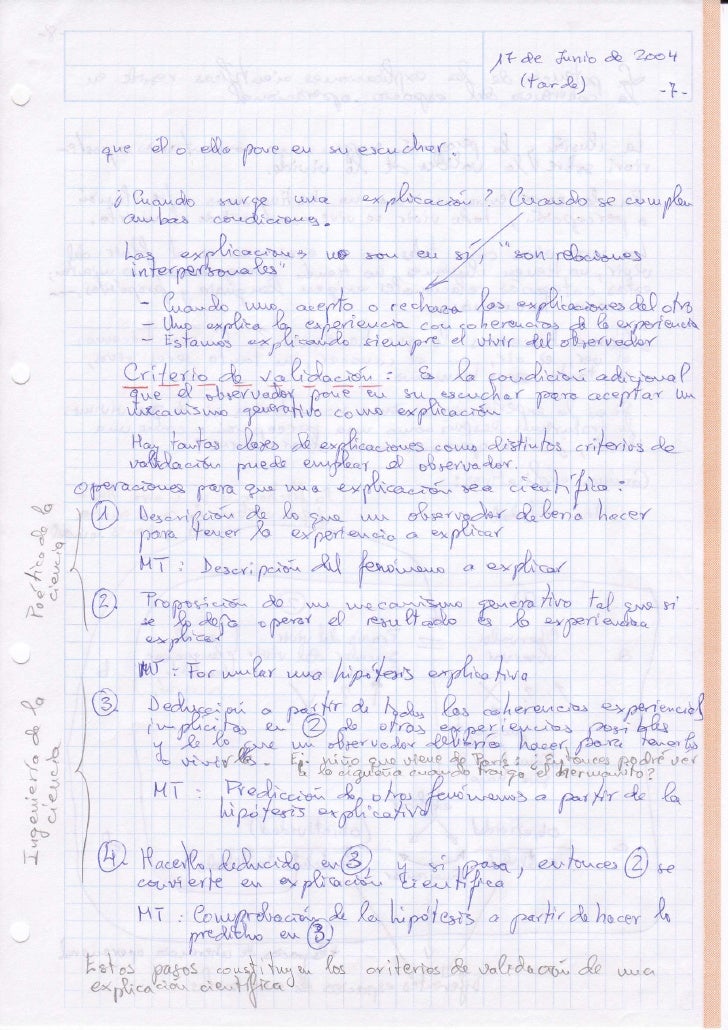 17 de Junio de 2004
(tarde)
-7-
que él o ella pone en su escuchar.
¿Cuándo surge una explicación? Cuando se cumplen
ambas condiciones.
Las explicaciones no son en sí, "son relaciones
interpersonales"
- Cuando uno acepta o rechaza las explicaciones del otro
- Uno explica la experiencia con coherencias de la experiencia
- Estamos explicando siempre el vivir del observador
Criterio de validación: Es la condición adicional
que el observador pone en su escuchar para aceptar un
mecanismo generativo como explicación
Hay tantas clases de explicaciones como distintos criterios de
validación puede emplear el observador.
Operaciones para que una explicación sea científica:
Poética de la
ciencia
① Descripción de lo que un observador debería hacer
para tener la experiencia a explicar
MT: Descripción del fenómeno a explicar
② Proposición de un mecanismo generativo tal que si
se lo deja operar el resultado es la experiencia
explicar
MT: Formular una hipótesis explicativa
Ingeniería de la
ciencia
③ Deducción a partir de todas las coherencias experiencial
implícitas en ② de otras experiencias posibles
y de lo que un observador debería hacer para tenerlas
o vivirlas. Ej. niño que viene de París: ¿Entonces podré ver
a la cigüeña cuando traiga el hermanito?
MT: Predicción de otros fenómenos a partir de la
hipótesis explicativa
④ Hacer lo deducido en ③ y si pasa, entonces ② se
convierte en explicación científica
MT: Comprobación de la hipótesis a partir de hacer lo
predicho en ③
Estos pasos constituyen los criterios de validación de una
explicación científica